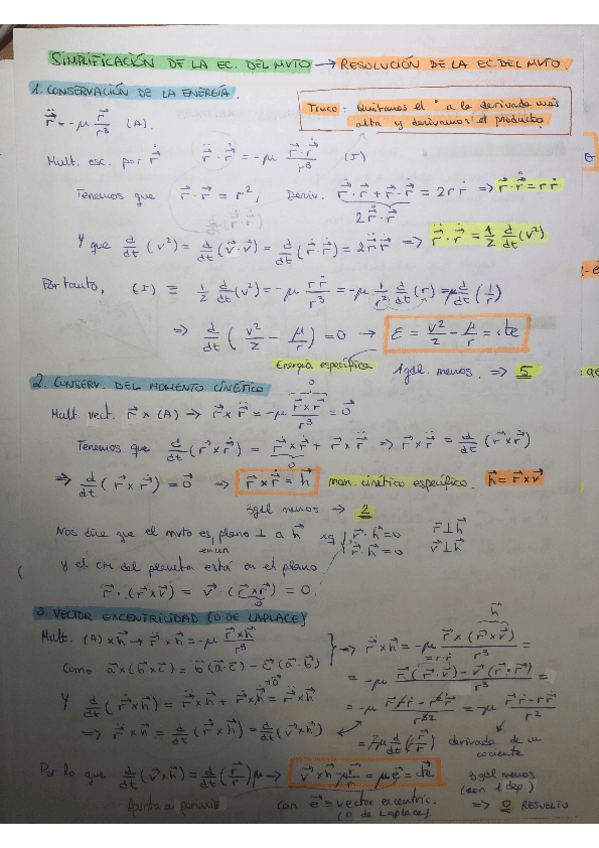 SIMPLIFICACIÓN DE LA EC. DEL MVTO → RESOLUCIÓN DE LA EC DEL MVTO.
1. CONSERVACIÓN DE LA ENERGÍA.
Truco: Quitamos el · a la derivada más
alta y derivamos el producto.
r⃗̈ = -μ r⃗/r³ (A).
Mult. esc. por r⃗̇   r⃗̈ · r⃗̇ = -μ (r⃗ · r⃗̇)/r³ (I)
Tenemos que r⃗ · r⃗ = r²; Deriv. r⃗̇ · r⃗ + r⃗ · r⃗̇ = 2r ṙ => r⃗ · r⃗̇ = r ṙ
2 r⃗̇ · r⃗
Y que d/dt (v²) = d/dt (v⃗ · v⃗) = d/dt (r⃗̇ · r⃗̇) = 2 r⃗̈ · r⃗̇ => r⃗̈ · r⃗̇ = 1/2 d/dt (v²)
Por tanto, (I) ≡ 1/2 d/dt (v²) = -μ r ṙ/r³ = -μ 1/r² d/dt (r) = μ d/dt (1/r)
=> d/dt (v²/2 - μ/r) = 0 → ε = v²/2 - μ/r = cte
Energía específica   1gdl. menos. => 5
2. CONSERV. DEL MOMENTO CINÉTICO
Mult. vect. r⃗ x (A) → r⃗ x r⃗̈ = -μ (r⃗ x r⃗)/r³ = 0⃗
Tenemos que d/dt (r⃗ x r⃗̇) = r⃗̇ x r⃗̇ + r⃗ x r⃗̈ => r⃗ x r⃗̈ = d/dt (r⃗ x r⃗̇)
=> d/dt (r⃗ x r⃗̇) = 0⃗ → r⃗ x r⃗̇ = h⃗ mom. cinético específico. h⃗ = r⃗ x v⃗
3gdl menos → 2
Nos dice que el mvto es plano ⊥ a h⃗ xq { r⃗ · h⃗ = 0   r⃗ ⊥ h⃗
en un   r⃗̇ · h⃗ = 0   v⃗ ⊥ h⃗
Y el CM del planeta está en el plano
r⃗ · (r⃗ x v⃗) = v⃗ · (r⃗ x r⃗) = 0.
3. VECTOR EXCENTRICIDAD (O DE LAPLACE)
Mult. (A) x h⃗ → r⃗̈ x h⃗ = -μ (r⃗ x h⃗)/r³ } → r⃗̈ x h⃗ = -μ (r⃗ x (r⃗ x v⃗))/r³ =
Como a⃗ x (b⃗ x c⃗) = b⃗ (a⃗ · c⃗) - c⃗ (a⃗ · b⃗)
= -μ (r⃗ (r⃗ · v⃗) - v⃗ (r⃗ · r⃗))/r³ =
Y d/dt (r⃗̇ x h⃗) = r⃗̈ x h⃗ + r⃗̇ x h⃗̇ = r⃗̈ x h⃗
=> r⃗̈ x h⃗ = d/dt (r⃗̇ x h⃗) = d/dt (v⃗ x h⃗)
= μ d/dt (r⃗/r) derivada de un
cociente
Por lo que d/dt (v⃗ x h⃗) = d/dt (r⃗/r) μ → v⃗ x h⃗ - μ r⃗/r = μ e⃗ = cte
3gdl menos
(con 1 dep.)
Apunta al periapsis con e⃗ = vector excentric.
(o de Laplace).
=> 0 RESUELTO